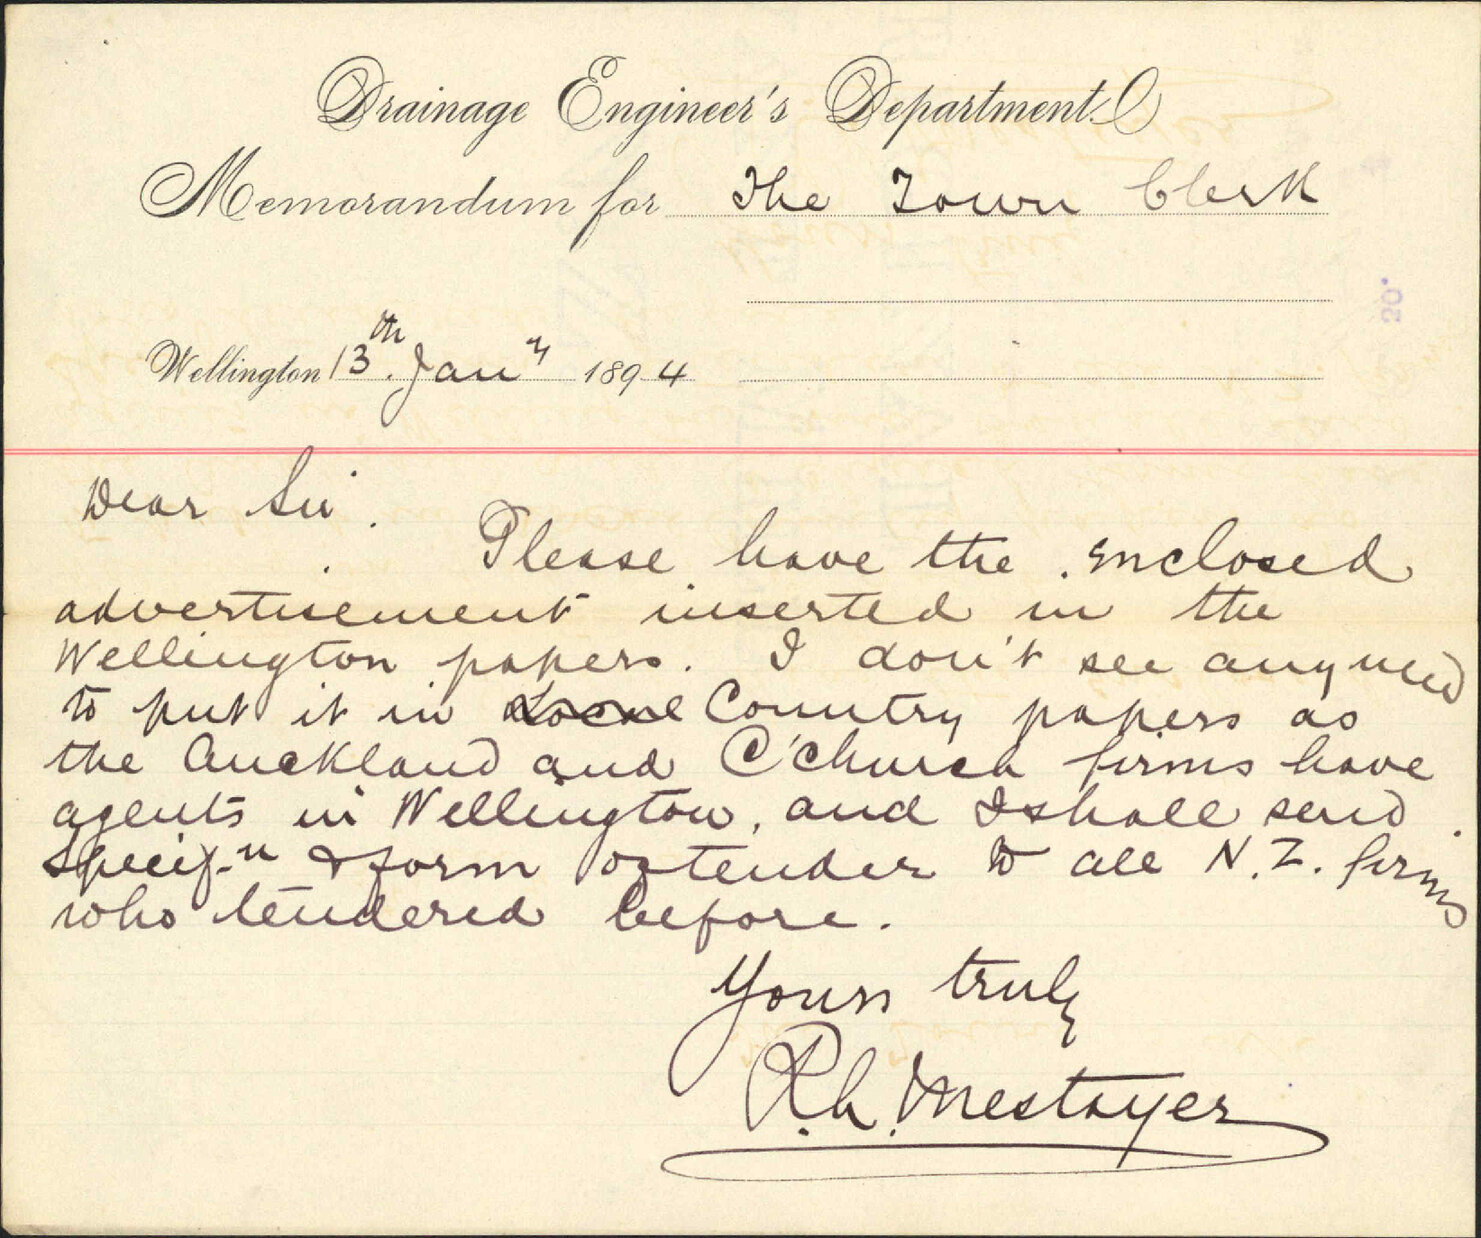 Drainage Engineer's Department
Memorandum for The Town Clerk
Wellington 13th. Jany 1894
Dear Sir.
Please have the enclosed
advertisement inserted in the
Wellington papers. I don't see any need
to put it in Local Country papers as
the Auckland and C'church firms have
agents in Wellington, and I shall send
Specif-n & form of tender to all N.Z. firms
who tendered before.
Yours truly
R.L. Mestayer